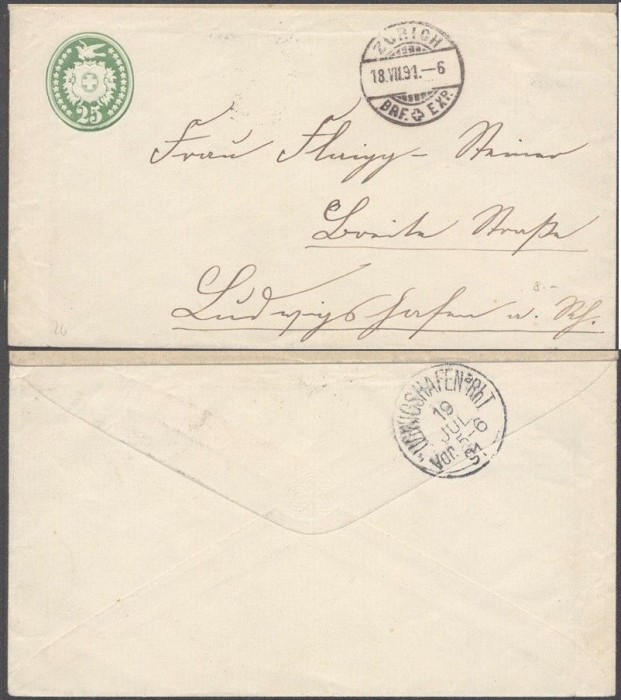 25
ZÜRICH
18.VII.91.-6
BRF. EXP.
Frau Flaigg-Steiner
Breite Straße
8.-
Ludwigshafen a. Rh.
26
LUDWIGSHAFEN a. Rh.
19
JUL
5-6
91